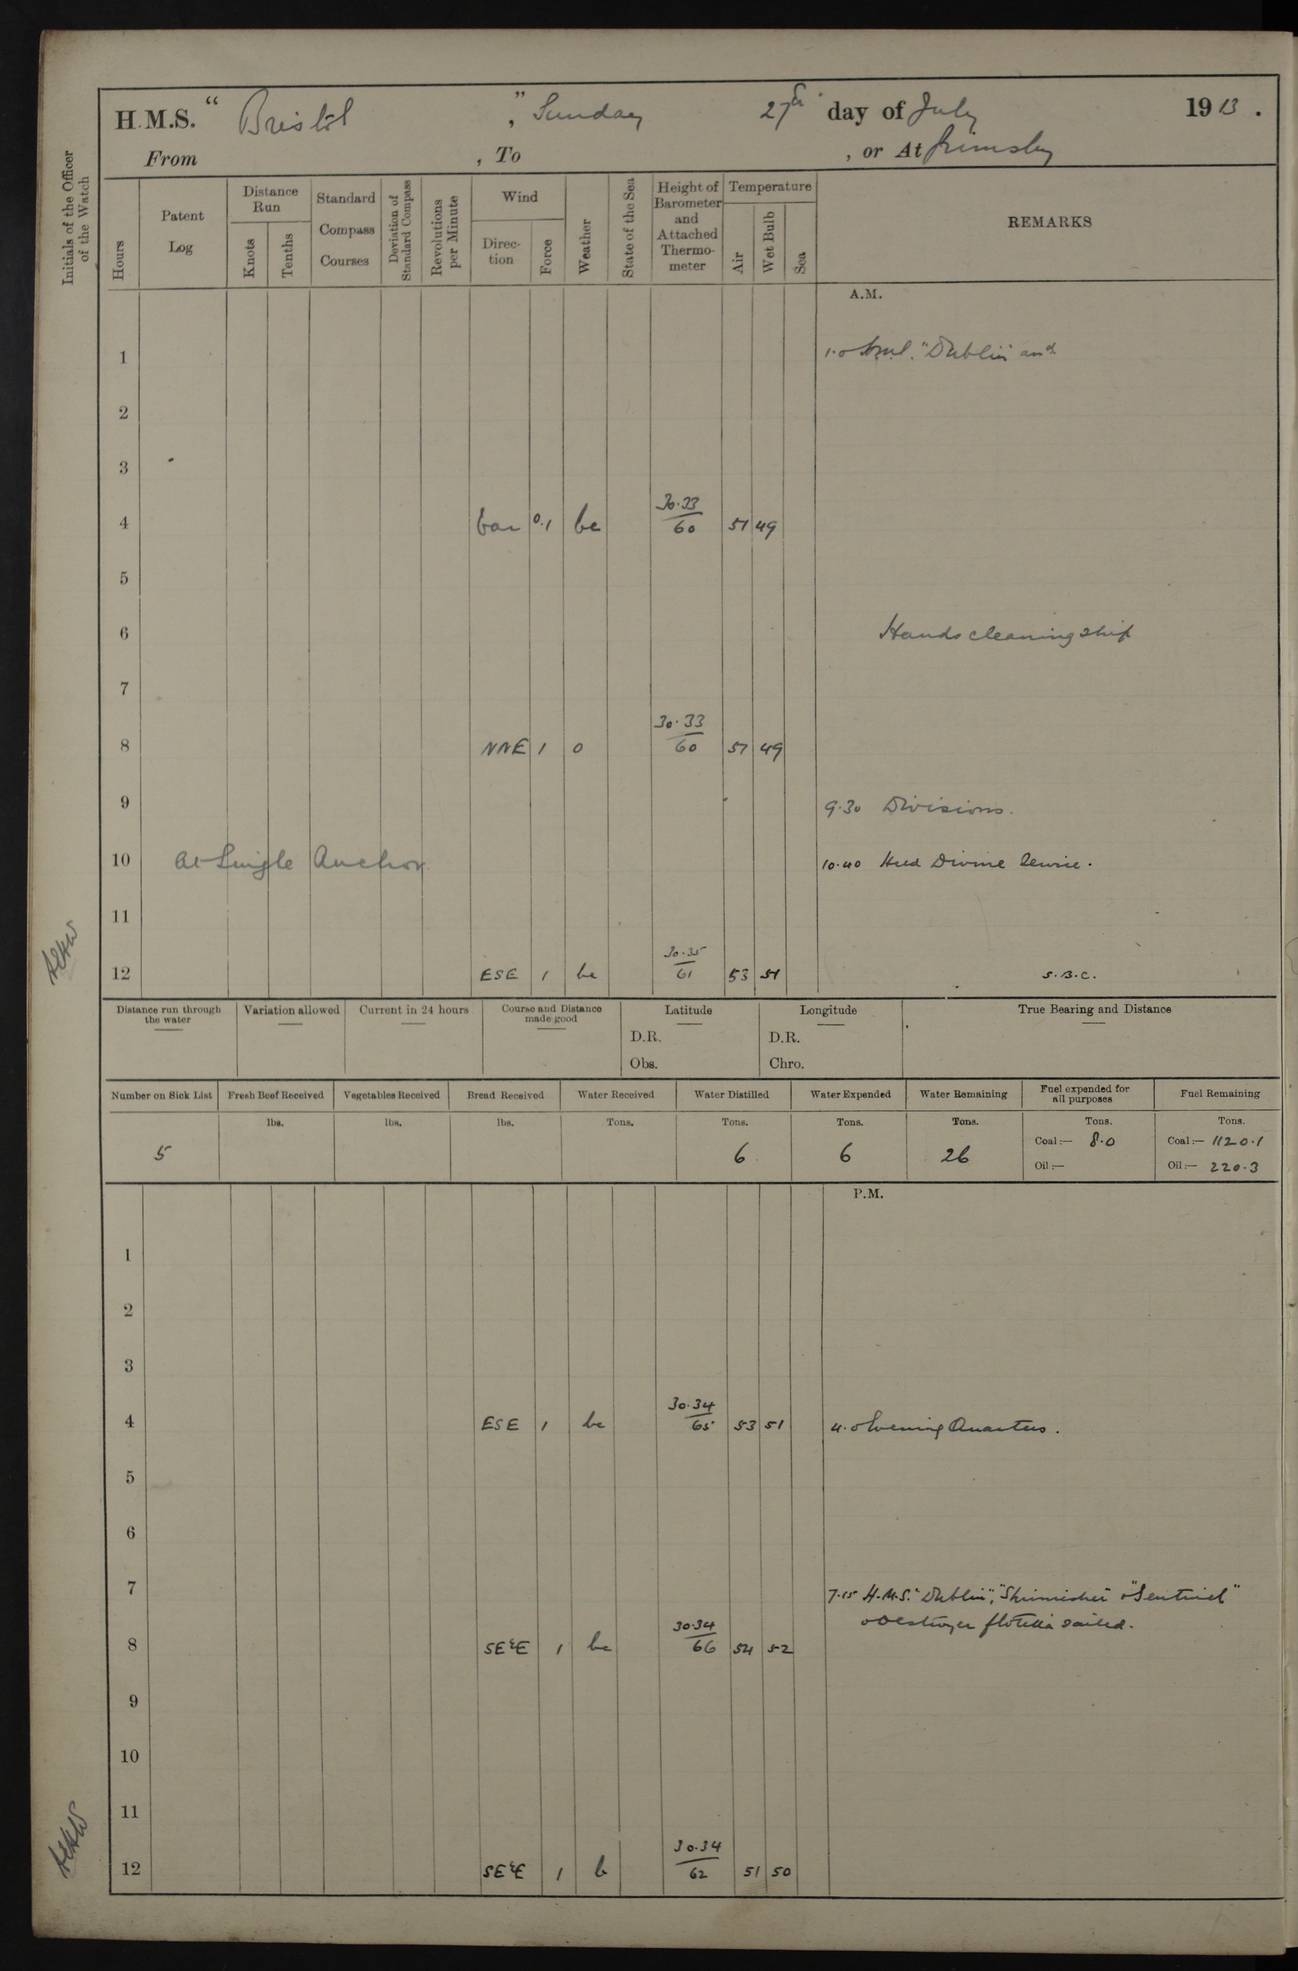 H.M.S. "Bristol", Sunday 27th day of July 1913.
From , To , or At Grimsby
Initials of the Officer of the Watch
Hours
Patent Log
Distance Run
Knots
Tenths
Standard Compass Courses
Deviation of Standard Compass
Revolutions per Minute
Wind
Direction
Force
Weather
State of the Sea
Height of Barometer and Attached Thermometer
Temperature
Air
Wet Bulb
Sea
REMARKS
A.M.
1 1.0 "Dublin" and
2
3
4 var 0.1 bc 30.33/60 51 49
5
6 Hands cleaning ship
7
8 NNE 1 o 30.33/60 51 49
9 9.30 Divisions.
10 At Single Anchor 10.40 Held Divine Service.
11
12 ESE 1 bc 30.35/61 53 51 S.B.C.
Distance run through the water
Variation allowed
Current in 24 hours
Course and Distance made good
Latitude
D.R.
Obs.
Longitude
D.R.
Chro.
True Bearing and Distance
Number on Sick List
Fresh Beef Received
Vegetables Received
Bread Received
Water Received
Water Distilled
Water Expended
Water Remaining
Fuel expended for all purposes
Fuel Remaining
lbs. lbs. lbs. Tons. Tons. Tons. Tons. Tons. Tons.
5 6 6 26 Coal:— 8.0 Coal:— 1120.1
Oil:— Oil:— 220.3
P.M.
1
2
3
4 ESE 1 bc 30.34/65 53 51 4.0 Evening Quarters.
5
6
7 7.15 H.M.S. "Dublin", "Skirmisher" & "Sentinel"
& Destroyer flotilla sailed.
8 SE'E 1 bc 30.34/66 54 52
9
10
11
12 SE'E 1 b 30.34/62 51 50